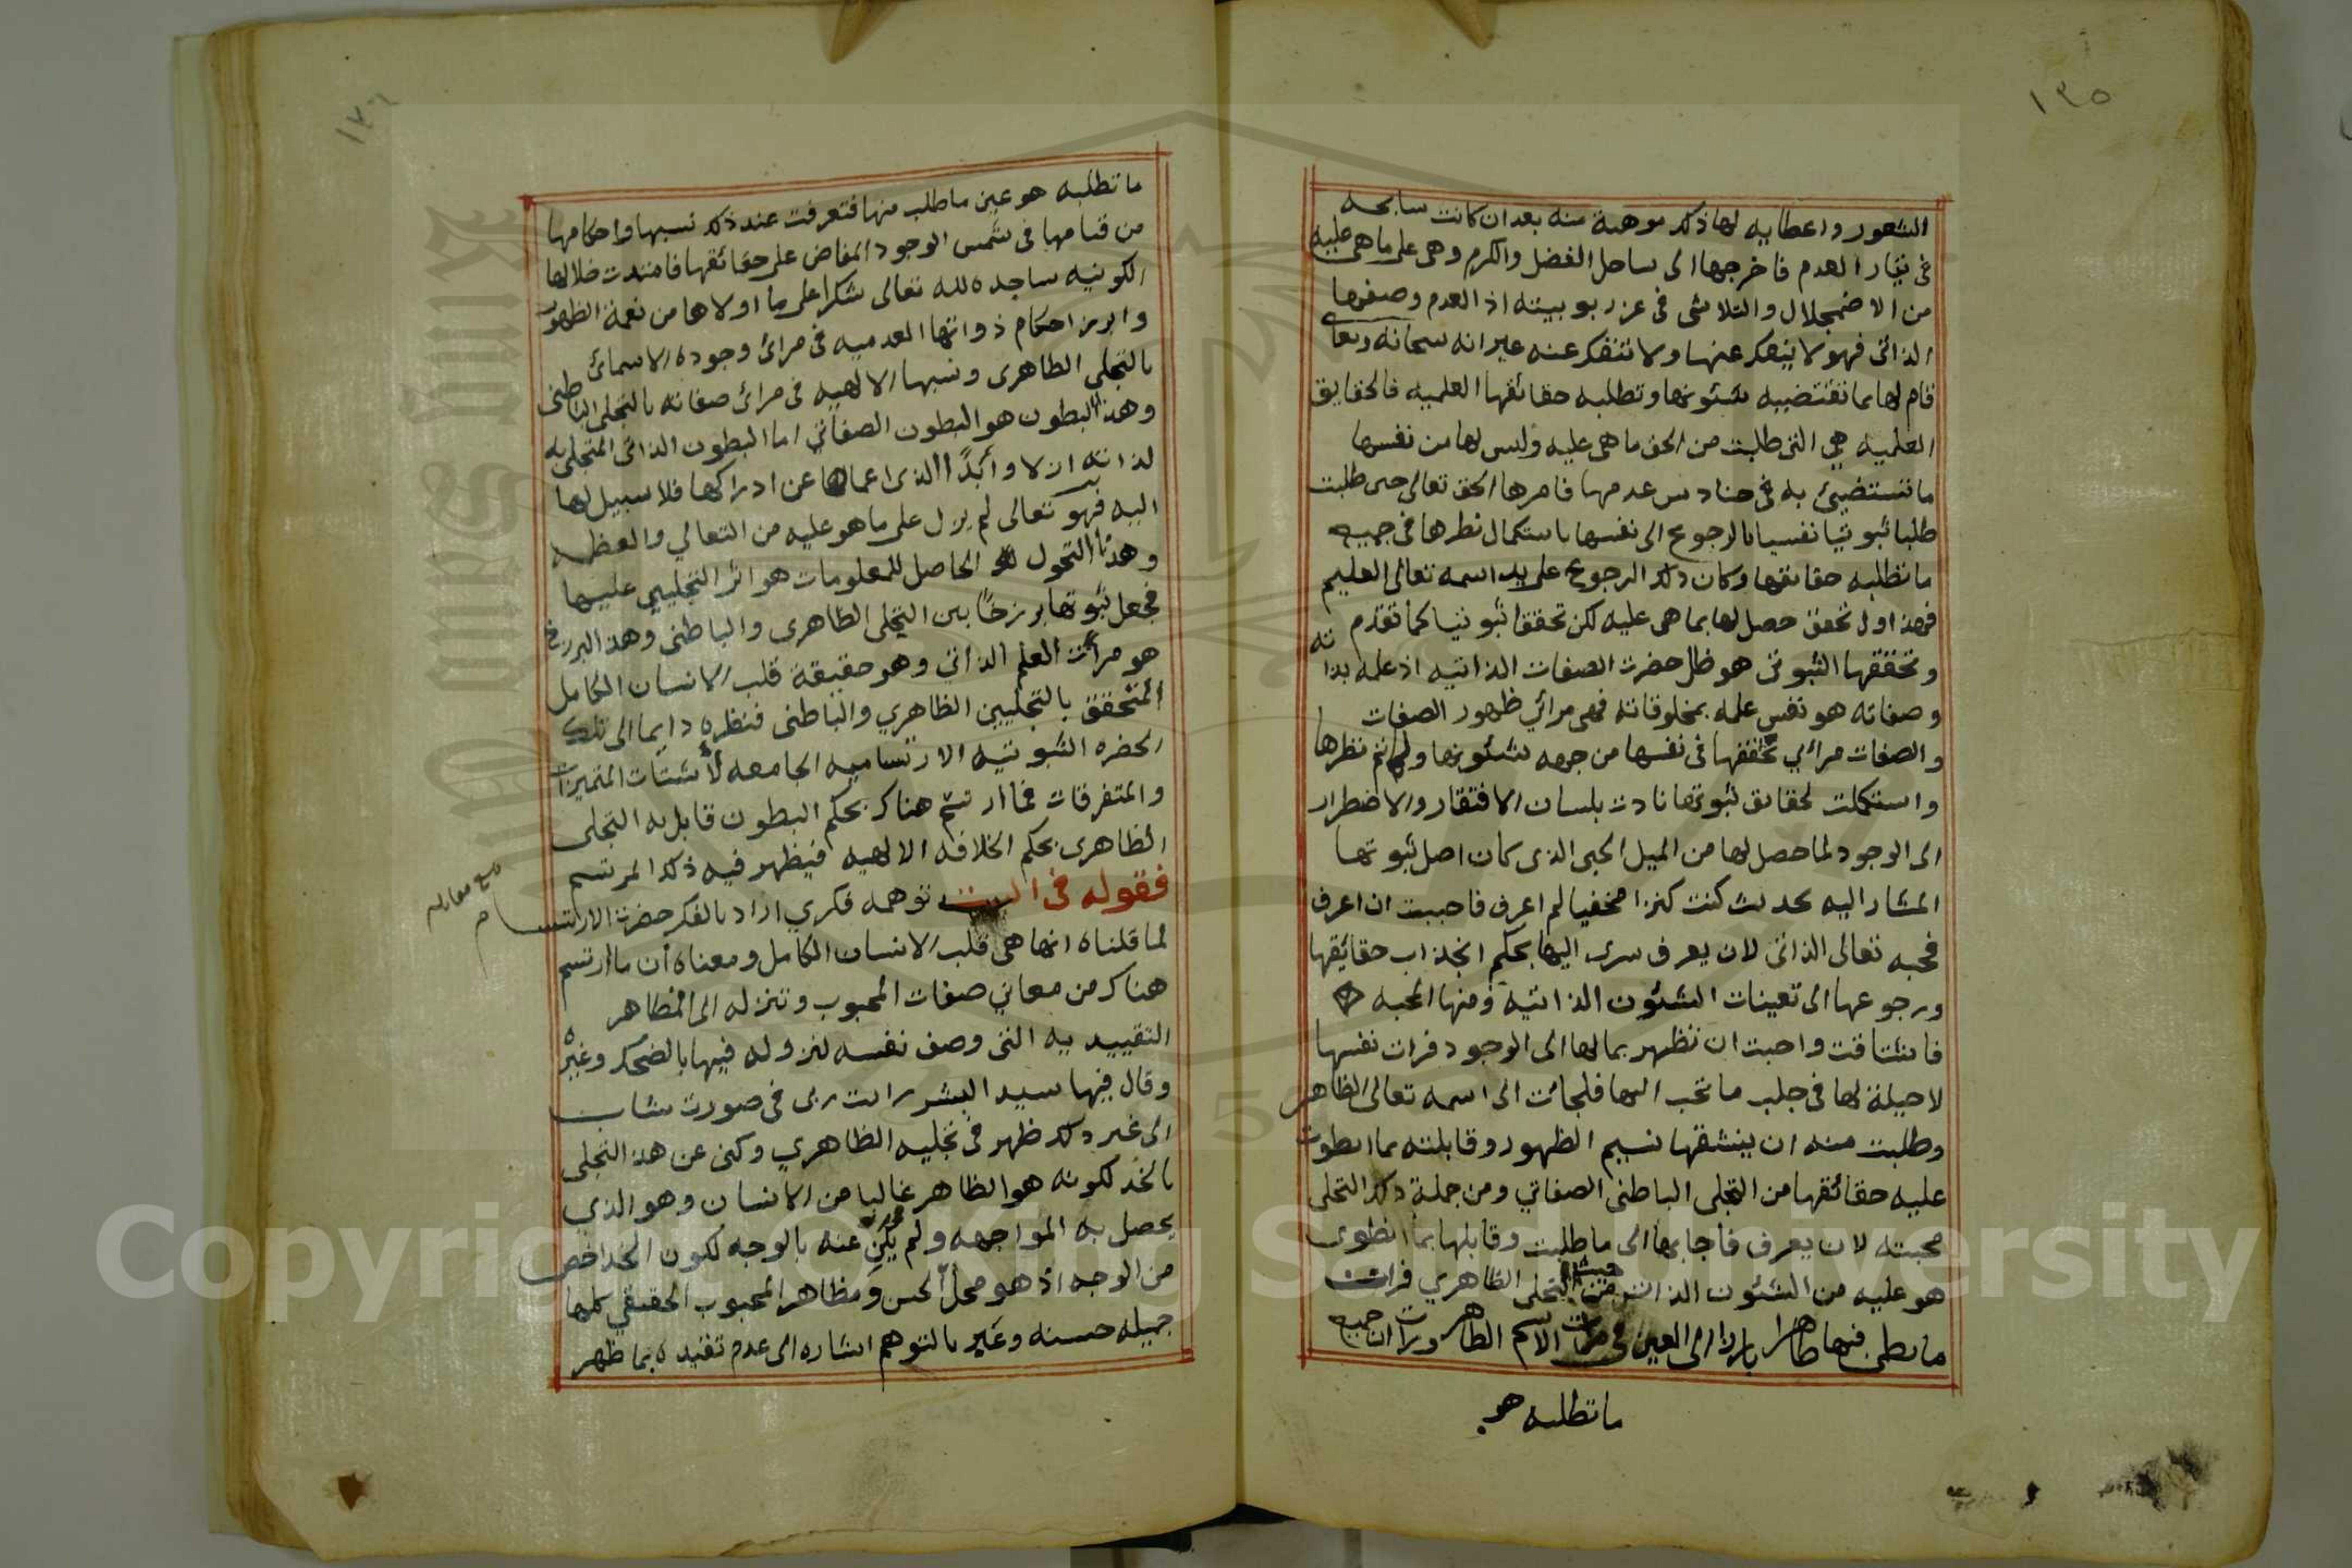 ١٣٥
الشعور واعطايه لها ذلك موهبة منه بعد ان كانت سابحه
فى تيار العدم فاخرجها الى ساحل الفضل والكرم وهى على ما هى عليه
من الاضمحلال والتلاشى فى عز ربوبيته اذ العدم وصفها
الذاتى فهو لا ينفك عنها ولا تنفك عنه غير انه سبحانه وتعالى
قام لها بما تقتضيه شئونها وتطلبه حقائقها العلميه فالحقايق
العلميه هي التى طلبت من الحق ما هى عليه وليس لها من نفسها
ما تستضيئ به فى حنادس عدمها فامرها الحق تعالى حتى طلبت
طلبا ثبوتيا نفسيا بالرجوع الى نفسها باستكمال نظرها فى جميع
ما تطلبه حقائقها وكان ذلك الرجوع على يد اسمه تعالى العليم
فهذا اول تحقق حصل لها بما هى عليه لكن تحققا ثبوتيا كما تقدم
وتحققها الثبوتى هو ظل حضرت الصفات الذاتيه اذ علمه بذاته
وصفاته هو نفس علمه بمخلوقاته فهى مرائي ظهور الصفات
والصفات مرائي تحققها فى نفسها من جهه شئونها ولما تم نظرها
واستكملت لحقائق ثبوتها نادت بلسان الافتقار والاضطرار
الى الوجود لما حصل لها من الميل الحبى الذى كان اصل ثبوتها
المشار اليه بحديث كنت كنزا مخفيا لم اعرف فاحببت ان اعرف
فحبه تعالى الذاتى لان يعرف سرى اليها بحكم انجذاب حقائقها
ورجوعها الى تعينات الشئون الذاتيه ومنها المحبه
فاشتاقت واحبت ان تظهر بما لها الى الوجود فرات نفسها
لا حيلة لها فى جلب ما تحب اليها فلجائت الى اسمه تعالى الظاهر
وطلبت منه ان ينشقها نسيم الظهور وقابلته بما انطوت
عليه حقائقها من التجلى الباطنى الصفاتي ومن جملة ذلك التجلى
محبته لان يعرف فاجابها الى ما طلبت وقابلها بما انطوى
هو عليه من الشئون الذاتيه من حيث التجلى الظاهري فرات
ما بطن فيها ظاهرا بارزا الى العين فى مرات الاسم الظاهر ورات ان جميع
ما تطلبه هو
١٣٦
ما تطلبه هو عين ما طلب منها فتعرفت عند ذلك نسبها واحكامها
من قيامها فى شمس الوجود المفاض على حقائقها فامتدت ظلالها
الكونيه ساجده لله تعالى شكرا على ما اولاها من نعمة الظهور
وابرز احكام ذواتها العدميه فى مرائ وجوده الاسمائ
بالتجلى الظاهرى ونسبها الالهيه فى مرائ صفاته بالتجلى الباطنى
وهذا البطون هو البطون الصفاتي اما البطون الذاتى المتجلى به
لذاته ازلا وأبدًا الذى اعماها عن ادراكها فلا سبيل لها
اليه فهو تعالى لم يزل على ما هو عليه من التعالي والعظمه
وهذا التحول الحاصل للمعلومات هو اثر التجليين عليها
فجعل ثبوتها برزخًا بين التجلى الظاهرى والباطنى وهذا البرزخ
هو مرأت العلم الذاتى وهو حقيقة قلب الانسان الكامل
المتحقق بالتجليين الظاهري والباطنى فنظره دايما الى تلك
الحضره الثبوتيه الارتساميه الجامعه لأشتات المتميزات
والمتفرقات فما ارتسم هناك بحكم البطون قابل به التجلى
الظاهرى بحكم الخلافه الالهيه فيظهر فيه ذلك المرتسم
فقوله فى البيت توهمه فكري اراد بالفكر حضرت الارتسام
لما قلناه انها هى قلب الانسان الكامل ومعناه أن ما ارتسم
هناك من معاني صفات المحبوب وتنزله الى المظاهر
التقييديه التى وصف نفسه لنزوله فيها بالضحك وغيره
وقال فيها سيد البشر رائت ربى فى صورت شاب
الى غير ذلك ظهر فى تجليه الظاهري وكنى عن هذا التجلى
بالخد لكونه هو الظاهر غالبا من الانسان وهو الذي
يحصل به المواجهه ولم يكن عنه بالوجه لكون الخد اخص
من الوجه اذ هو محل الحسن ومظاهر المحبوب الحقيقي كلها
جميله حسنه وعبر بالتوهم اشاره الى عدم تقيده بما ظهر
Copyright © King Saud University